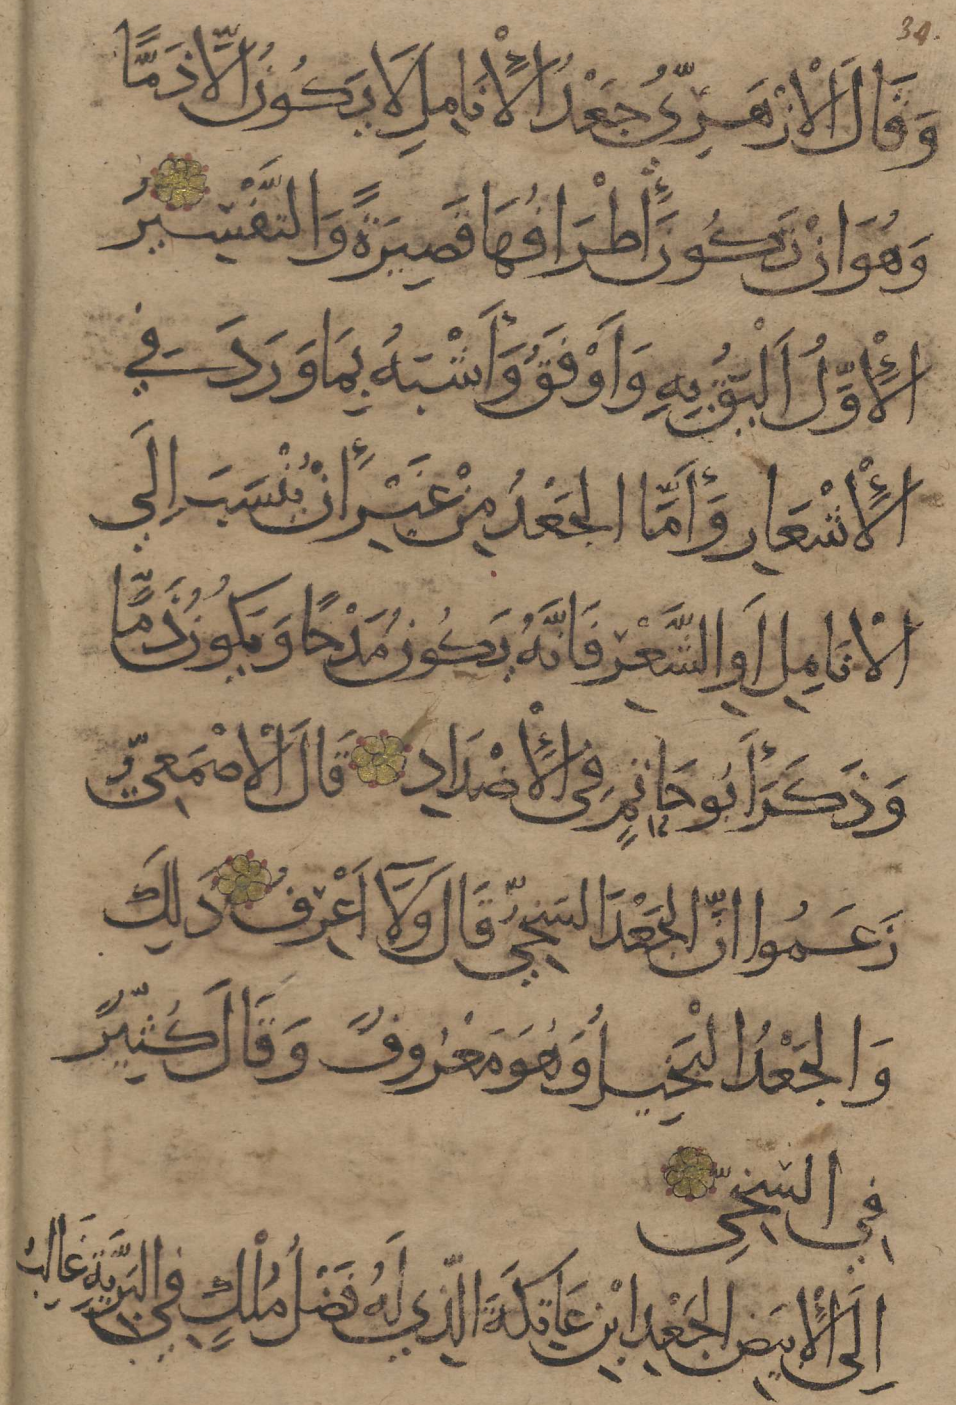 34.
وَقَالَ الْأَزْهَرِيُّ جَعْدُ الْأَنَامِلِ لَا يَكُونُ إِلَّا ذَمًّا
وَهُوَ اَنْ تَكُونَ أَطْرَافُهَا قَصِيرَةً وَالتَّفْسِيرُ
الْأَوَّلُ اَلْيَقُ بِهِ وَاَوْفَقُ وَأَشْبَهُ بِمَا وَرَدَ فِي
الْأَشْعَارِ وَأَمَّا الْجَعْدُ مِنْ غَيْرِ أَنْ يُنْسَبَ اِلَى
الْانَامِلِ اَوِ الشَّعْرِ فَاِنَّهُ يَكُونُ مَدْحًا وَيَكُونُ ذَمًّا
وَذَكَرَ أَبُو حَاتِمٍ فِي الْأَضْدَادِ قَالَ الْاَصْمَعِيُّ
زَعَمُوا انَّ الْجَعْدَ السَّخِيُّ قَالَ وَلَا اَعْرِفُ ذَلِكَ
وَالْجَعْدُ الْبَخِيلُ وَهُوَ مَعْرُوفٌ وَقَالَ كُثَيِّرٌ
فِي السَّخِيِّ
اِلَى الْأَبْيَضِ الْجَعْدِ ابْنِ عَاتِكَةَ الَّذِي لَهُ فَضْلُ مُلْكٍ فِي الْبَرِيَّةِ غَالِبُ